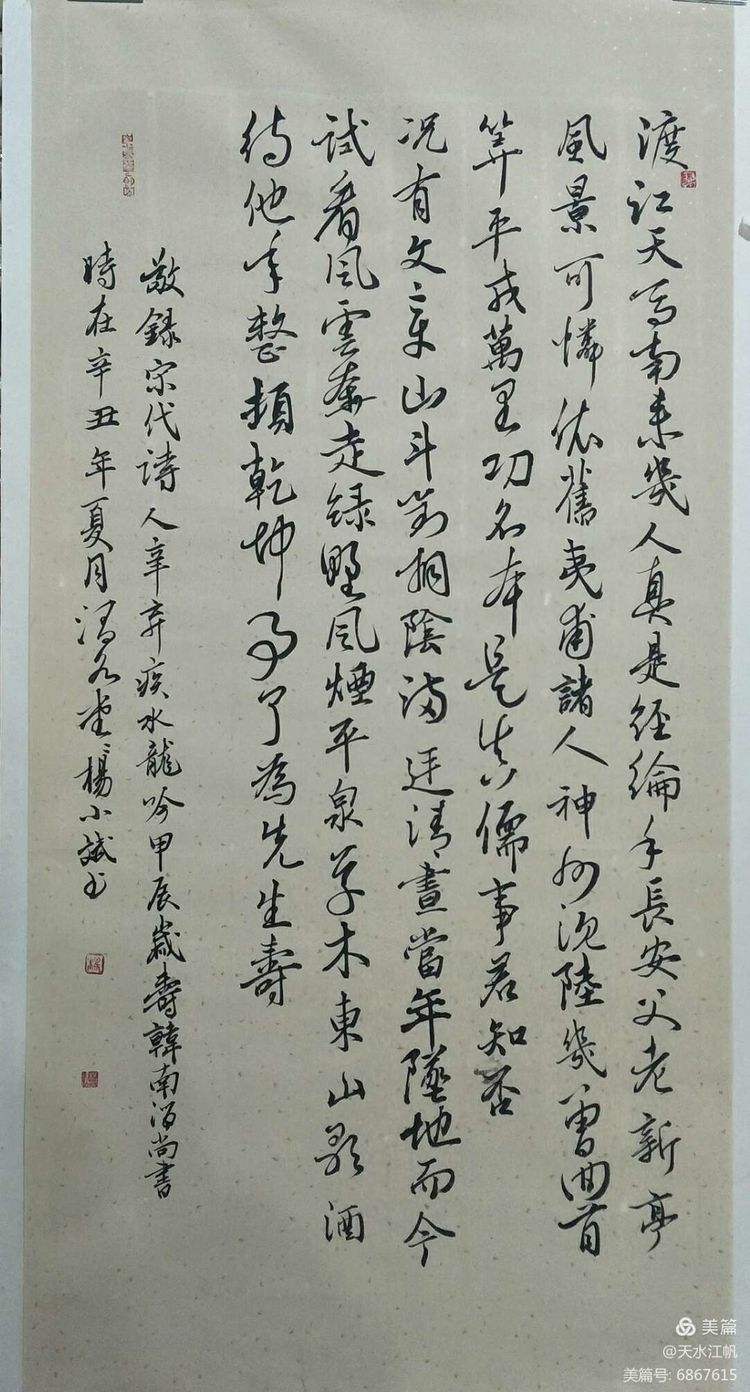 渡江天馬南来幾人真是經綸手長安父老新亭
風景可憐依舊夷甫諸人神州沉陸幾曾回首
算平戎萬里功名本是真儒事君知否
况有文章山斗對桐陰滿廷清晝當年墮地而今
試看風雲奔走綠野風煙平泉草木東山歌酒
待他年整頓乾坤事了為先生壽
敬錄宋代詩人辛弃疾水龍吟甲辰歲壽韓南澗尚書
時在辛丑年夏月清水堂楊小斌书
美篇
@天水江帆
美篇号: 6867615